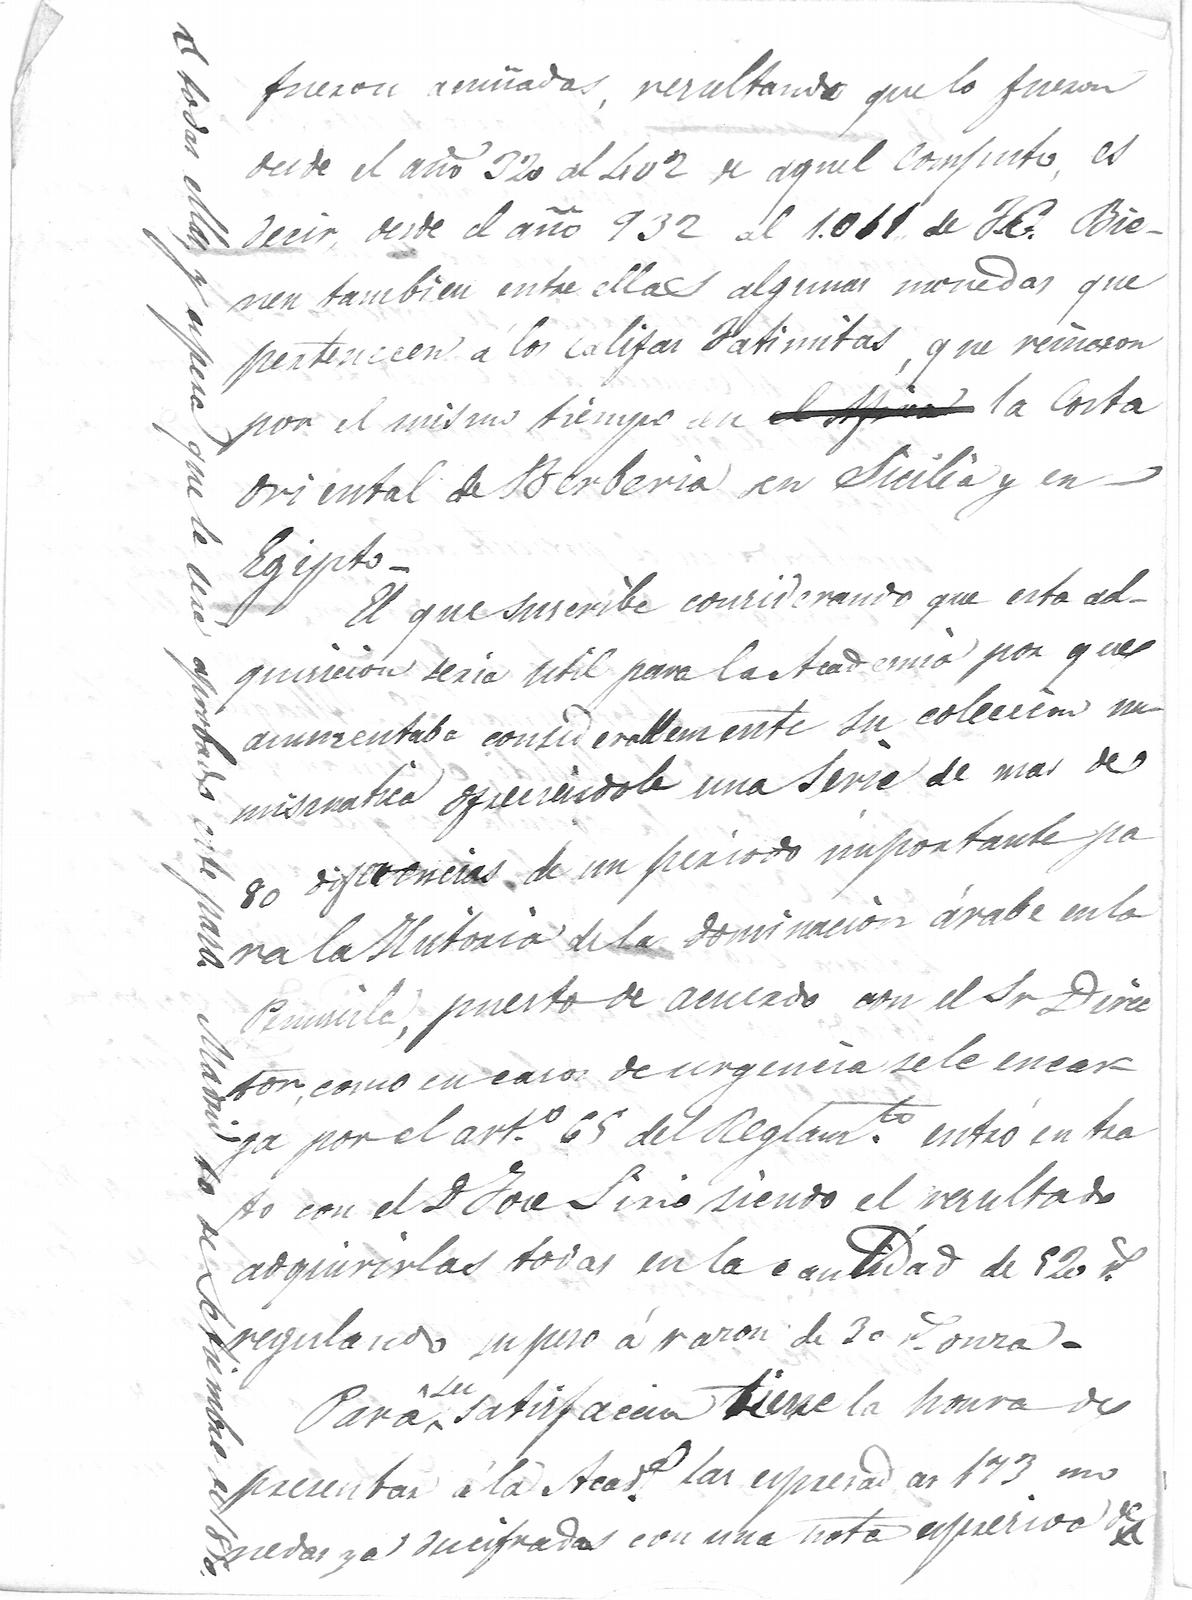 fueron acuñadas, resultando que lo fueron
desde el año 320 al 402 de aquel computo, es
decir, desde el año 932 al 1.011 de J.C. Bie-
nen tambien entre ellas algunas monedas que
pertenecen á los califas Fatimitas, que reinaron
por el mismo tiempo en el Africa la Costa
Oriental de Berberia en Sicilia y en
Egipto_
El que suscribe considerando que esta ad-
quisicion seria util para la Academia por que
aumentaba considerablemente su coleccion nu-
mismatica ofreciendole una serie de mas de
80 diferencias de un periodo importante pa
ra la Historia de la dominacion árabe en la
Peninsula, puesto de acuerdo con el Sr Direc
tor, como en casos de urgencia se le encar
ga por el art.º 65 del Reglam.to entró en tra
to con el D Jose Pirio siendo el resultado
adquirirlas todas en la cantidad de 520 r.s
regulando su peso á razon de 30 r.s onza_
Para su satisfaccion tiene la honra de
presentar á la Acad.a las espresadas 173 mo
nedas ya descifradas con una nota espresiva de
de todas ellas, y espera que le será aprobado este paso. Madrid de Setiembre de